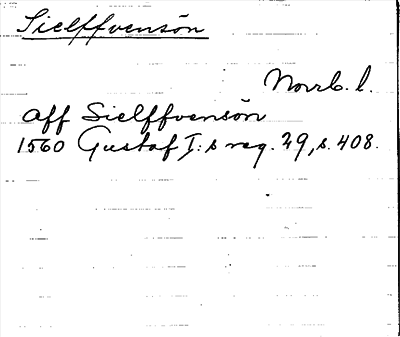 Sielffvensön
Norrb. l.
aff Sielffvensön
1560 Gustaf I:s reg. 29, s. 408.